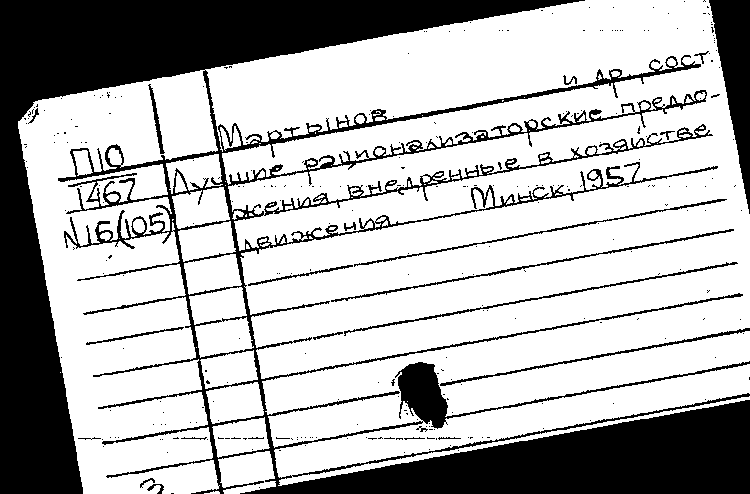 П10
1467
N16(105)
Мартынов и др., сост.
Лучшие рационализаторские предло-
жения, внедренные в хозяйстве
движения. Минск, 1957.
3.